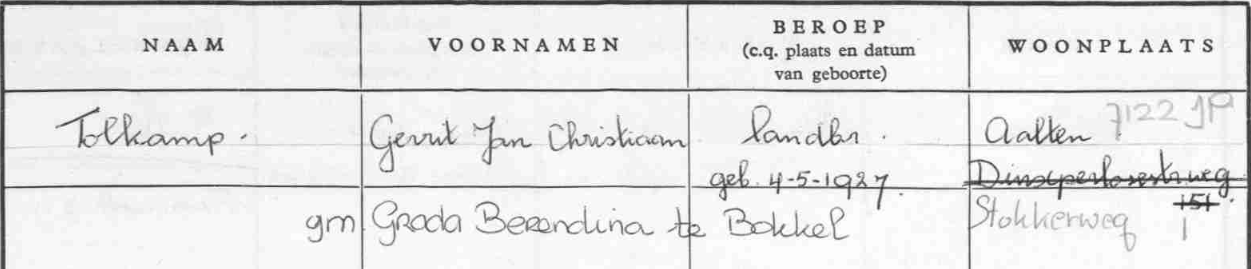 NAAM VOORNAMEN BEROEP (c.q. plaats en datum van geboorte) WOONPLAATS
Tolkamp. Gerrit Jan Christiaan landbr. Aalten 7122 JP
geb. 4-5-1927. Dinxperlosestr.weg 151
gm Groda Berendina te Bokkel Stokkerweg 1